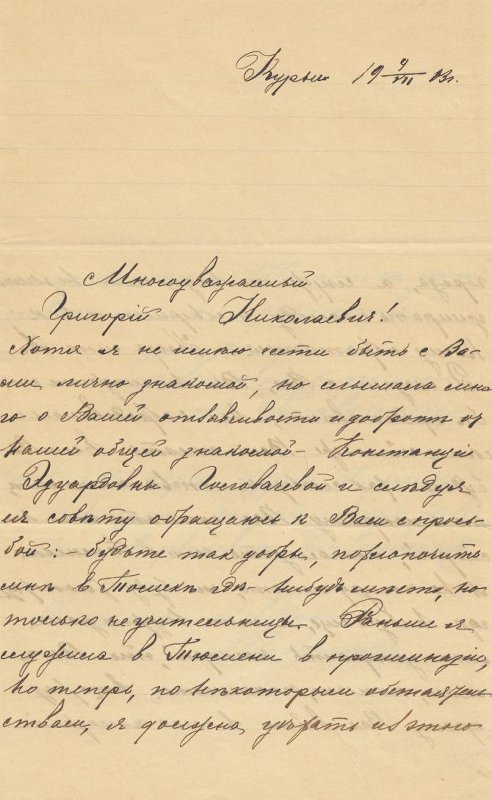 Курьи 19 4/VII 03 г.
Многоуважаемый
Григорій Николаевич!
Хотя я не имѣю чести быть с Ва-
ми лично знакомой, но слышала мно-
го о Вашей отзывчивости и добротѣ от
нашей общей знакомой - Констанціи
Эдуардовны и слѣдуя
ея совѣту обращаюсь к Вам с прось-
бой: - будьте так добры, похлопочите
мнѣ в Томскѣ гдѣ-нибудь мѣсто, но
только не учительницы. Раньше я
служила в Тюмени в прогимназіи,
но теперь, по нѣкоторым обстоятель-
ствам, я должна уѣхать из этого